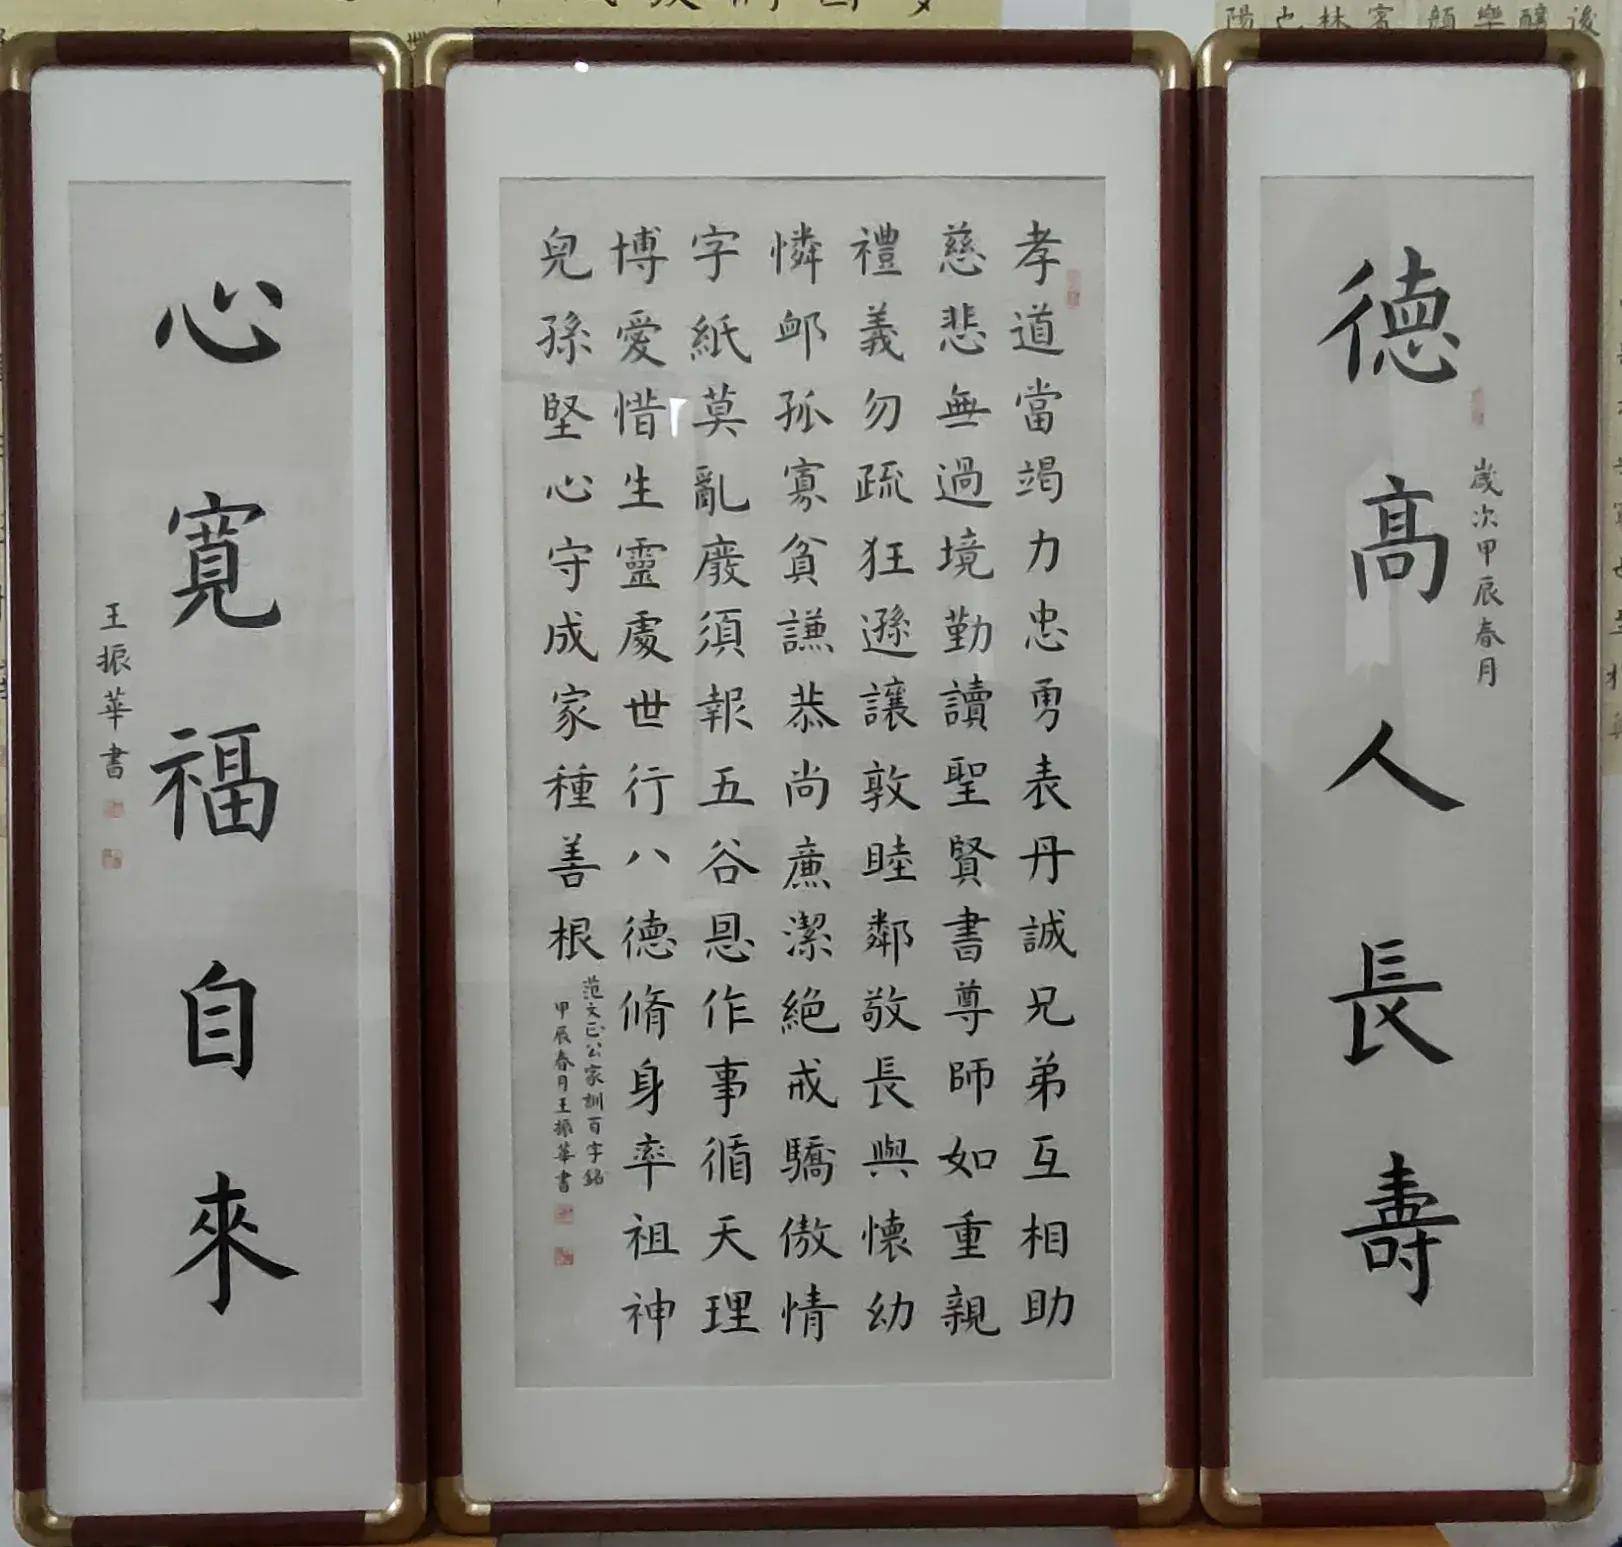 德高人長壽
歲次甲辰春月
孝道當竭力忠勇表丹誠兄弟互相助
慈悲無過境勤讀聖賢書尊師如重親
禮義勿疏狂遜讓敦睦鄰敬長與懷幼
憐卹孤寡貧謙恭尚廉潔絕戒驕傲情
字紙莫亂廢須報五谷恩作事循天理
博愛惜生靈處世行八德脩身率祖神
兒孫堅心守成家種善根
范文正公家訓百字銘
甲辰春月王振華書
心寬福自來
王振華書
後
醉
樂
顏
林
也
陽